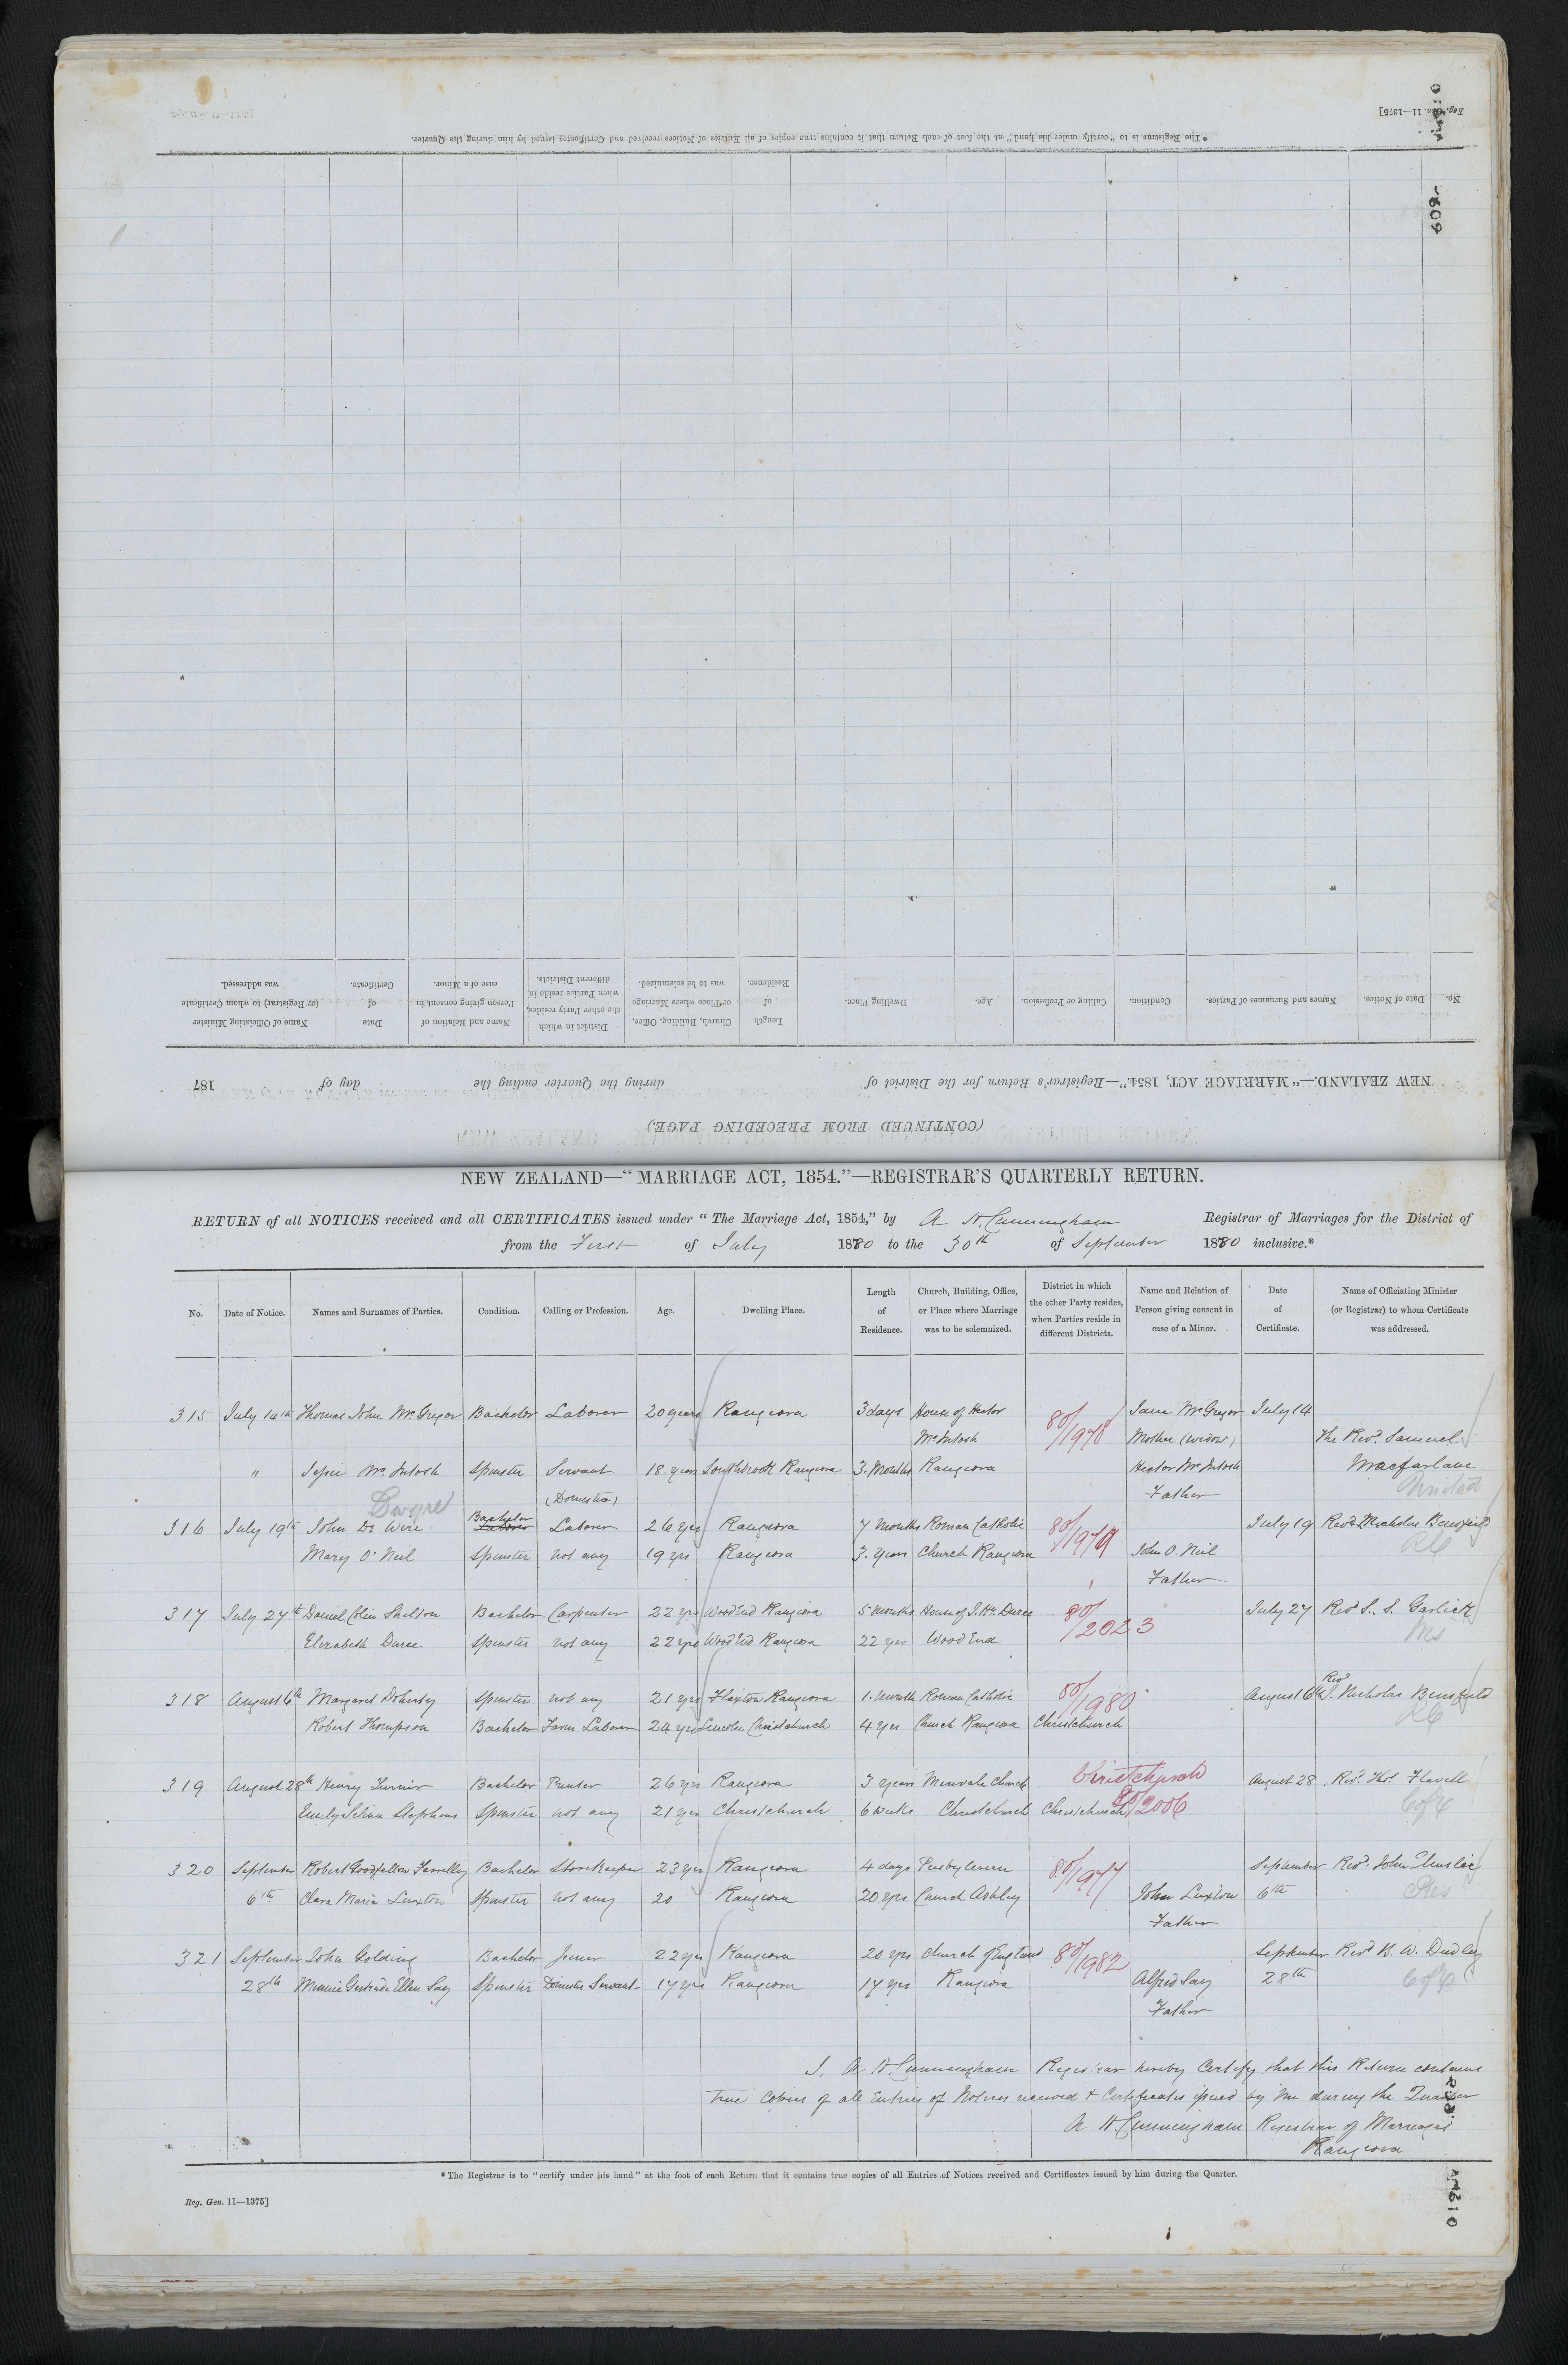 Reg. Gen. 11—1375]
* The Registrar is to "certify under his hand" at the foot of each Return that it contains true copies of all Entries of Notices received and Certificates issued by him during the Quarter.
609
No. Date of Notice. Names and Surnames of Parties. Condition. Calling or Profession. Age. Dwelling Place. Length of Residence. Church, Building, Office, or Place where Marriage was to be solemnized. District in which the other Party resides, when Parties reside in different Districts. Name and Relation of Person giving consent in case of a Minor. Date of Certificate. Name of Officiating Minister (or Registrar) to whom Certificate was addressed.
NEW ZEALAND.—"MARRIAGE ACT, 1854."—Registrar's Return for the District of during the Quarter ending the day of 187
(CONTINUED FROM PRECEDING PAGE.)
NEW ZEALAND—"MARRIAGE ACT, 1854."—REGISTRAR'S QUARTERLY RETURN.
RETURN of all NOTICES received and all CERTIFICATES issued under "The Marriage Act, 1854," by A H. Cunningham Registrar of Marriages for the District of
from the First of July 1880 to the 30th of September 1880 inclusive.*
No. Date of Notice. Names and Surnames of Parties. Condition. Calling or Profession. Age. Dwelling Place. Length of Residence. Church, Building, Office, or Place where Marriage was to be solemnized. District in which the other Party resides, when Parties reside in different Districts. Name and Relation of Person giving consent in case of a Minor. Date of Certificate. Name of Officiating Minister (or Registrar) to whom Certificate was addressed.
315 July 14th Thomas John McGregor Bachelor Laborer 20 years Rangiora 3 days House of Hector 80/1978 Jane McGregor July 14
McIntosh Mother (widow) The Revd. Samuel
" Jessie McIntosh Spinster Servant 18 years Southbrook Rangiora 3 Months Rangiora Hector McIntosh Macfarlane
(Domestic) Father United
Dwyre Bachelor
316 July 19th John De Wire Laborer Laborer 26 yrs Rangiora 7 Months Roman Catholic 80/1979 July 19 Revd. Nicholas
Mary O'Neil Spinster not any 19 yrs Rangiora 3 years Church Rangiora John O'Neil RC
Father
317 July 27th Daniel Colin Shelton Bachelor Carpenter 22 yrs WoodEnd Rangiora 5 Months House of Duree 80/2023 July 27 Revd S. S. Garlick
Elizabeth Duree Spinster not any 22 yrs WoodEnd Rangiora 22 yrs WoodEnd Ms
318 August 6th Margaret Doherty Spinster not any 21 yrs Flaxton Rangiora 1 Month Roman Catholic 80/1980 August 6th Revd. Nicholas
Robert Thompson Bachelor Farm Laborer 24 yrs Lincoln Christchurch 4 yrs Church Rangiora Christchurch RC
319 August 28th Henry Turner Bachelor Printer 26 yrs Rangiora 3 years Merivale Church Christchurch August 28 Revd. Thos. Flavell
Emily Selina Stephens Spinster not any 21 yrs Christchurch 6 weeks Christchurch Christchurch 80/2006 C of E
320 September Robert Goodfellow Farrelley Bachelor Storekeeper 23 yrs Rangiora 4 days Presbyterian 80/1977 September Revd. John Elmslie
6th Clara Maria Luxton Spinster not any 20 Rangiora 20 yrs Church Ashley John Luxton 6th Pres
Father
321 September John Golding Bachelor Joiner 22 yrs Rangiora 20 yrs Church of England 80/1982 September Revd B. W. Dudley
28th Minnie Gertrude Ellen Say Spinster Domestic Servant 17 yrs Rangiora 17 yrs Rangiora Alfred Say 28th C of E
Father
I, A H. Cunningham Registrar hereby Certify that this Return contains
true Copies of all Entries of Notices received & Certificates issued by me during the Quarter
A H Cunningham Registrar of Marriages
Rangiora
* The Registrar is to "certify under his hand" at the foot of each Return that it contains true copies of all Entries of Notices received and Certificates issued by him during the Quarter.
Reg. Gen. 11—1375]